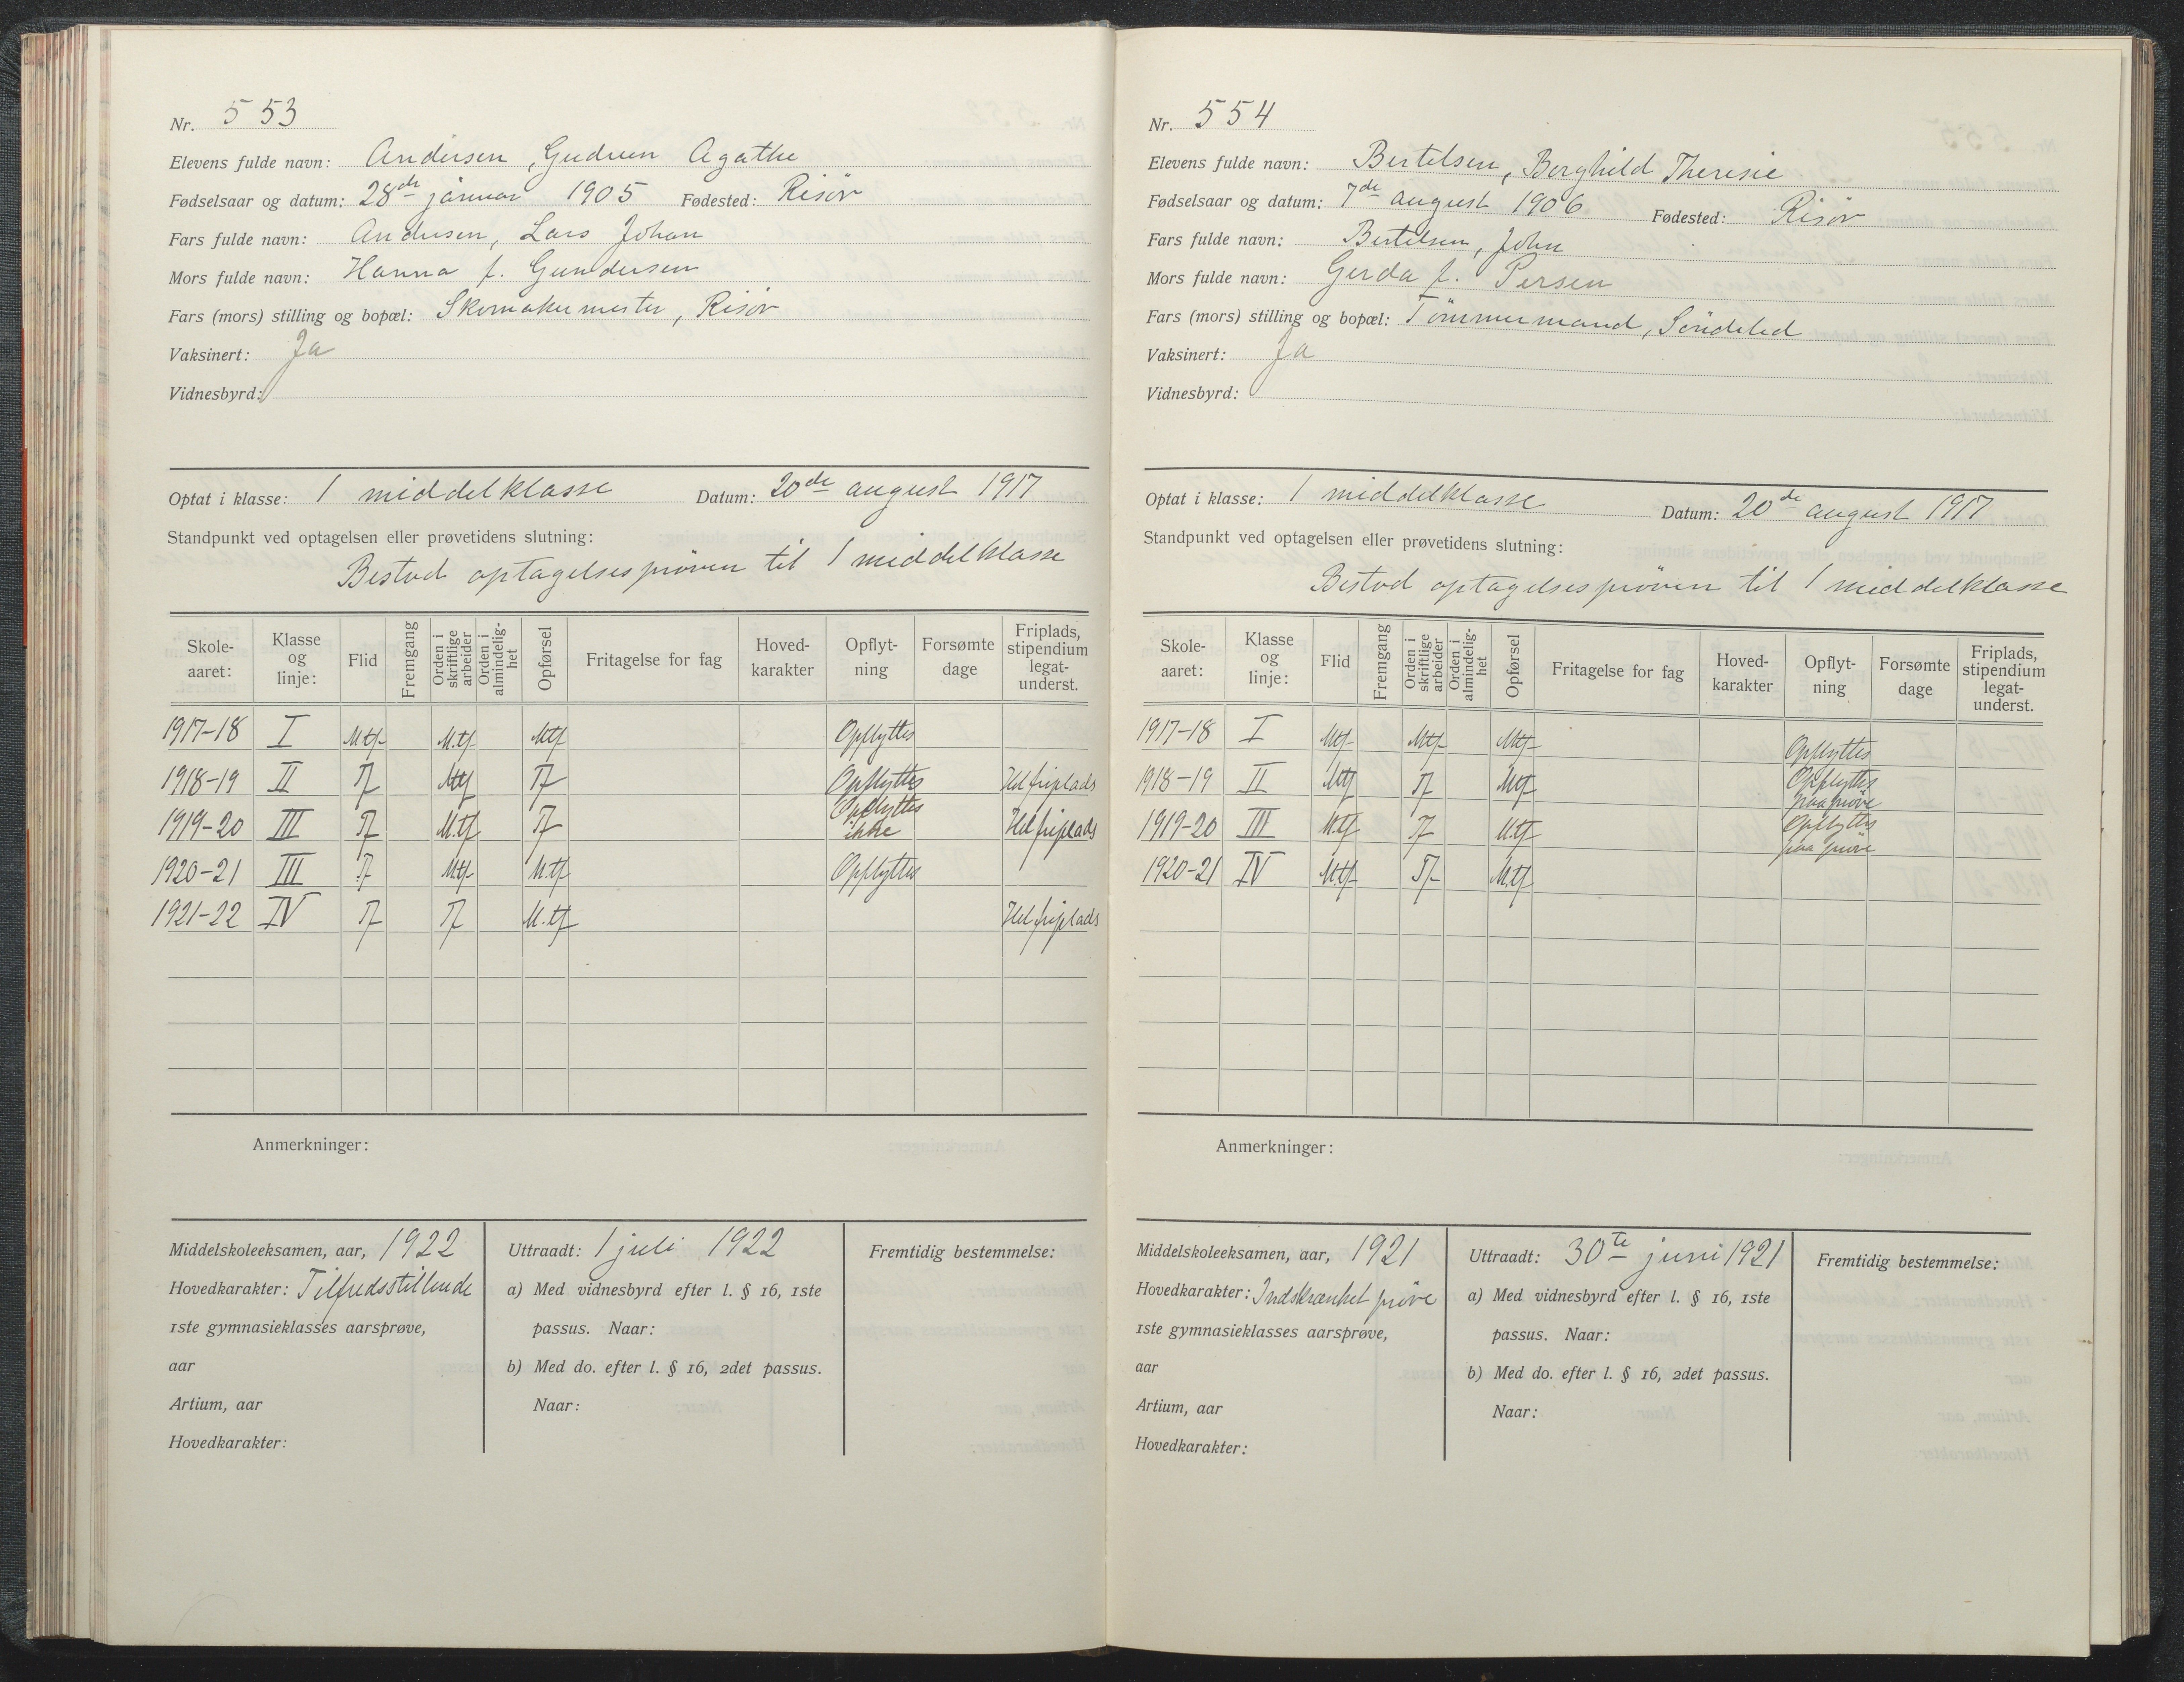 Nr. 553
Elevens fulde navn: Andersen, Gudrun Agathe
Fødselsaar og datum: 28de januar 1905 Fødested: Risör
Fars fulde navn: Andersen, Lars Johan
Mors fulde navn: Hanna f. Gundersen
Fars (mors) stilling og bopæl: Skomakermester, Risör
Vaksinert: Ja
Vidnesbyrd:
Optat i klasse: 1 middelklasse Datum: 20de august 1917
Standpunkt ved optagelsen eller prøvetidens slutning:
Bestod optagelsesprøven til 1 middelklasse
Skole-aaret: Klasse og linje: Flid Fremgang Orden i skriftlige arbeider Orden i almindelig-het Opførsel Fritagelse for fag Hoved-karakter Opflyt-ning Forsømte dage Friplads, stipendium legat-underst.
1917-18 I Mtf M.tf Mtf Opflyttes
1918-19 II Tf Mtf Tf Opflyttes Hel friplads
1919-20 III Tf M.tf Tf Opflyttes ikke Hel friplads
1920-21 III Tf Mtf M.tf Opflyttes
1921-22 IV Tf Tf M.tf Hel friplads
Anmerkninger:
Middelskoleeksamen, aar, 1922
Hovedkarakter: Tilfredsstillende
1ste gymnasieklasses aarsprøve,
aar
Artium, aar
Hovedkarakter:
Uttraadt: 1 juli 1922
a) Med vidnesbyrd efter l. § 16, 1ste
passus. Naar:
b) Med do. efter l. § 16, 2det passus.
Naar:
Fremtidig bestemmelse:
Nr. 554
Elevens fulde navn: Bertelsen, Borghild Theresie
Fødselsaar og datum: 7de august 1906 Fødested: Risör
Fars fulde navn: Bertelsen, John
Mors fulde navn: Gerda f. Persen
Fars (mors) stilling og bopæl: Tömmermand, Söndeled
Vaksinert: Ja
Vidnesbyrd:
Optat i klasse: 1 middelklasse Datum: 20de august 1917
Standpunkt ved optagelsen eller prøvetidens slutning:
Bestod optagelsesprøven til 1 middelklasse
Skole-aaret: Klasse og linje: Flid Fremgang Orden i skriftlige arbeider Orden i almindelig-het Opførsel Fritagelse for fag Hoved-karakter Opflyt-ning Forsømte dage Friplads, stipendium legat-underst.
1917-18 I Mtf Mtf Mtf Opflyttes
1918-19 II Mtf Tf Mtf Opflyttes paa prøve
1919-20 III M.tf Tf M.tf Opflyttes paa prøve
1920-21 IV Mtf Tf M.tf
Anmerkninger:
Middelskoleeksamen, aar, 1921
Hovedkarakter: Indskrænket prøve
1ste gymnasieklasses aarsprøve,
aar
Artium, aar
Hovedkarakter:
Uttraadt: 30te juni 1921
a) Med vidnesbyrd efter l. § 16, 1ste
passus. Naar:
b) Med do. efter l. § 16, 2det passus.
Naar:
Fremtidig bestemmelse: